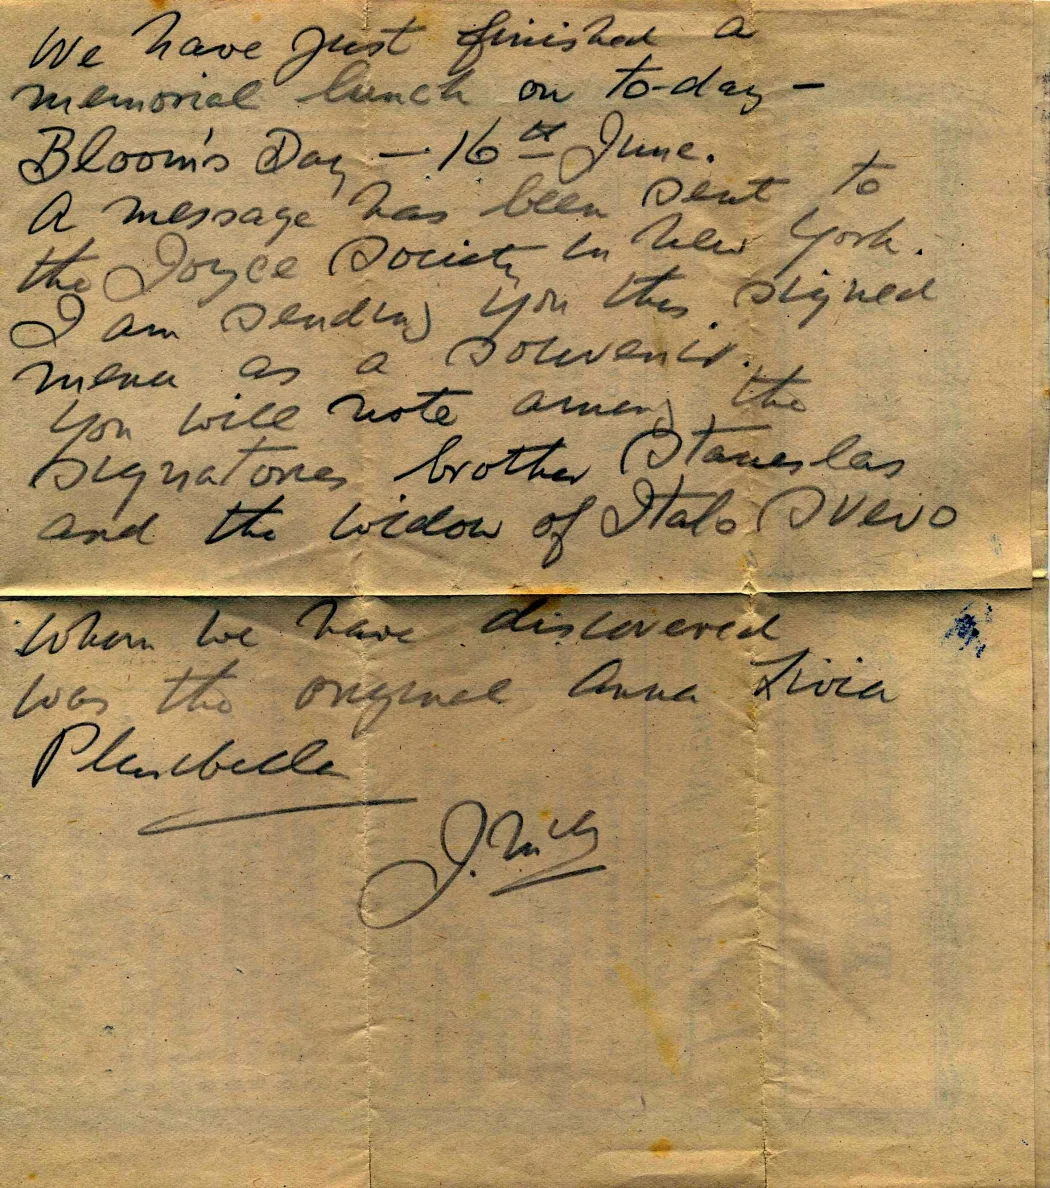 We have just finished a
memorial lunch on to-day –
Bloom's Day – 16th June.
A message has been sent to
the Joyce Society in New York.
I am sending you this signed
menu as a souvenir.
You will note among the
signatories brother Stanislas
and the widow of Italo Svevo
whom we have discovered
was the original Anna Livia
Plurabella
J.